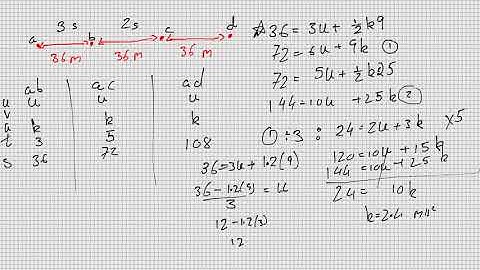 3s 2s
a b c d
36m 36m 36m
ab ac ad
u u u u
v
a k k k
t 3 5
s 36 72 108
36 = 3u + 1.2(9)
36 - 1.2(9) = u
3
12 - 1.2(3)
12
36 = 3u + ½k9
72 = 6u + 9k ①
72 = 5u + ½k25
144 = 10u + 25k ②
① ÷ 3 : 24 = 2u + 3k x5
120 = 10u + 15k
144 = 10u + 25k
24 = 10k
k = 2.4 m/s²